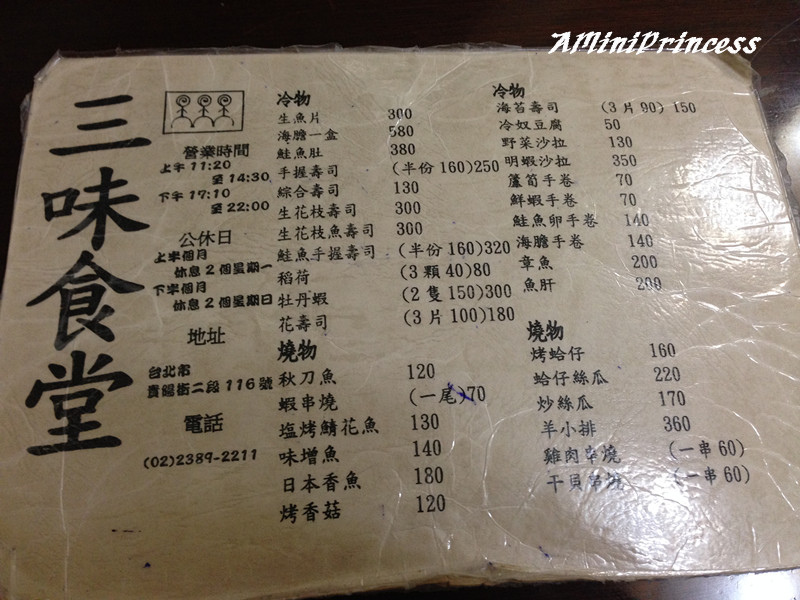 AMiniPrincess
三味食堂
營業時間
上午11:20
至14:30
下午17:10
至22:00
公休日
上半個月
休息2個星期一
下半個月
休息2個星期日
地址
台北市
貴陽街二段116號
電話
(02)2389-2211
冷物
生魚片 300
海膽一盒 580
鮭魚肚 380
手握壽司 (半份160)250
綜合壽司 130
生花枝壽司 300
生花枝魚壽司 300
鮭魚手握壽司 (半份160)320
稻荷 (3顆40)80
牡丹蝦 (2隻150)300
花壽司 (3片100)180
燒物
秋刀魚 120
蝦串燒 (一尾)70
塩烤鯖花魚 130
味增魚 140
日本香魚 180
烤香菇 120
冷物
海苔壽司 (3片90) 150
冷奴豆腐 50
野菜沙拉 130
明蝦沙拉 350
蘆筍手卷 70
鮮蝦手卷 70
鮭魚卵手卷 140
海膽手卷 140
章魚 200
魚肝 200
燒物
烤蛤仔 160
蛤仔絲瓜 220
炒絲瓜 170
羊小排 360
雞肉串燒 (一串60)
干貝串燒 (一串60)